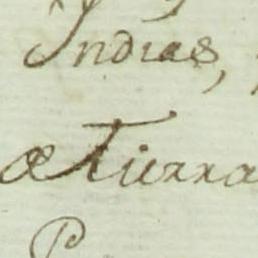 Indias,
æ Tierra
P